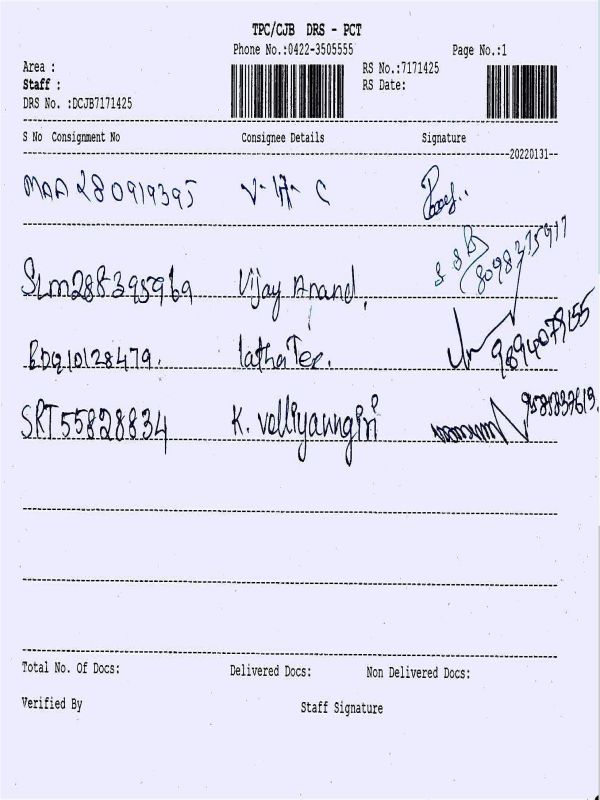 TPC/CJB DRS - PCT
Phone No.:0422-3505555 Page No.:1
Area : RS No.:7171425
Staff : RS Date:
DRS No. :DCJB7171425
S No Consignment No Consignee Details Signature
20220131
MAA280919395 V-H- C
SLM288395969 Vijay Anand, 8098375917
BDQ10128479. latha Tex. 9894079155
SRT55828834 K. Valliyanngiri
Total No. Of Docs: Delivered Docs: Non Delivered Docs:
Verified By Staff Signature